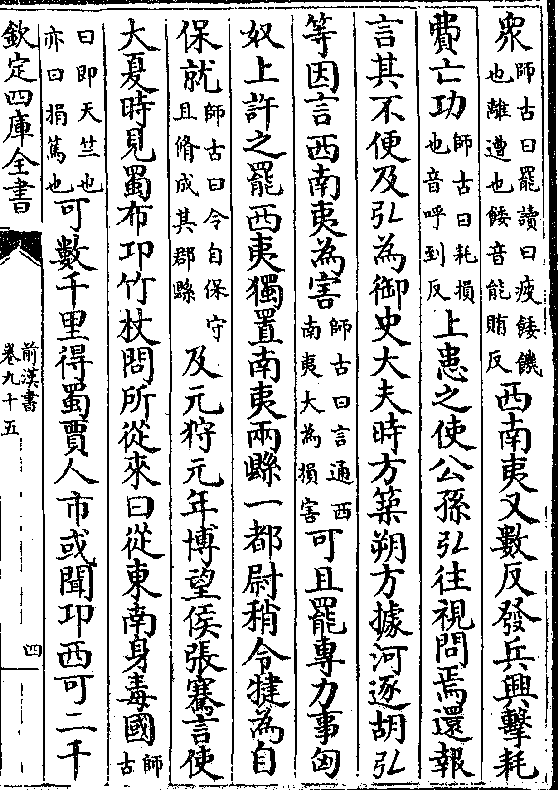 衆師古曰罷讀曰疲餧饑也離遭也餧音能賄反西南夷又數反發兵興擊耗
費亡功師古曰耗損也音呼到反上患之使公孫弘往視問焉還報
言其不便及弘為御史大夫時方築朔方據河逐胡弘
等因言西南夷為害師古曰言通西南夷大為損害可且罷專力事匈
奴上許之罷西夷獨置南夷兩縣一都尉稍令犍為自
保就師古曰令自保守且脩成其郡縣及元狩元年博望侯張騫言使
大夏時見蜀布邛竹杖問所從來曰從東南身毒國師古
曰即天竺也亦曰捐篤也可數千里得蜀賈人市或聞邛西可二千
欽定四庫全書
前漢書
卷九十五
四